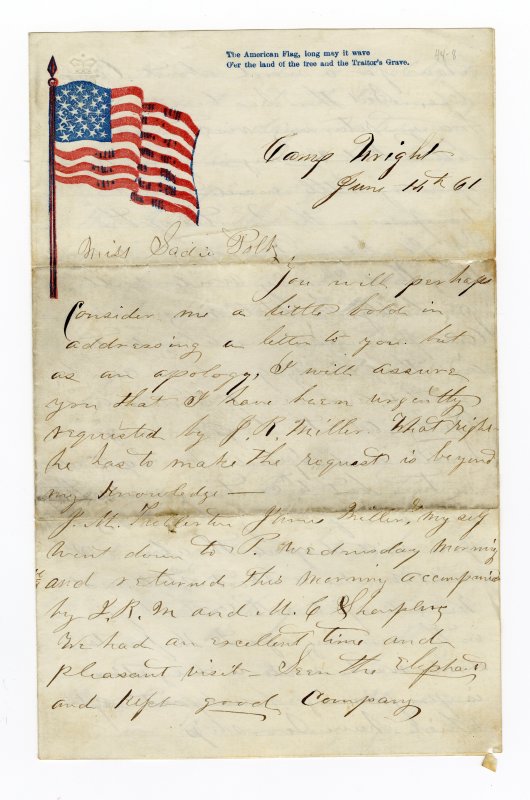 The American Flag, long may it wave
O'er the land of the free and the Traitor's Grave.
44-8
Camp Wright
June 14th 61
Miss Sadie Polk
You will perhaps
Consider me a little bold in
addressing a letter to you but
as an apology, I will assure
you that I have been urgently
requested by J. R. Miller What right
he has to make the request is beyond
my Knowledge —
J. M. James Miller & my self
went down to P. Wednesday morning
and returned this morning accompanied
by J. R. M and M. C Sharpless
We had an excellent time and
pleasant visit — Seen the Elephant
and kept good Company